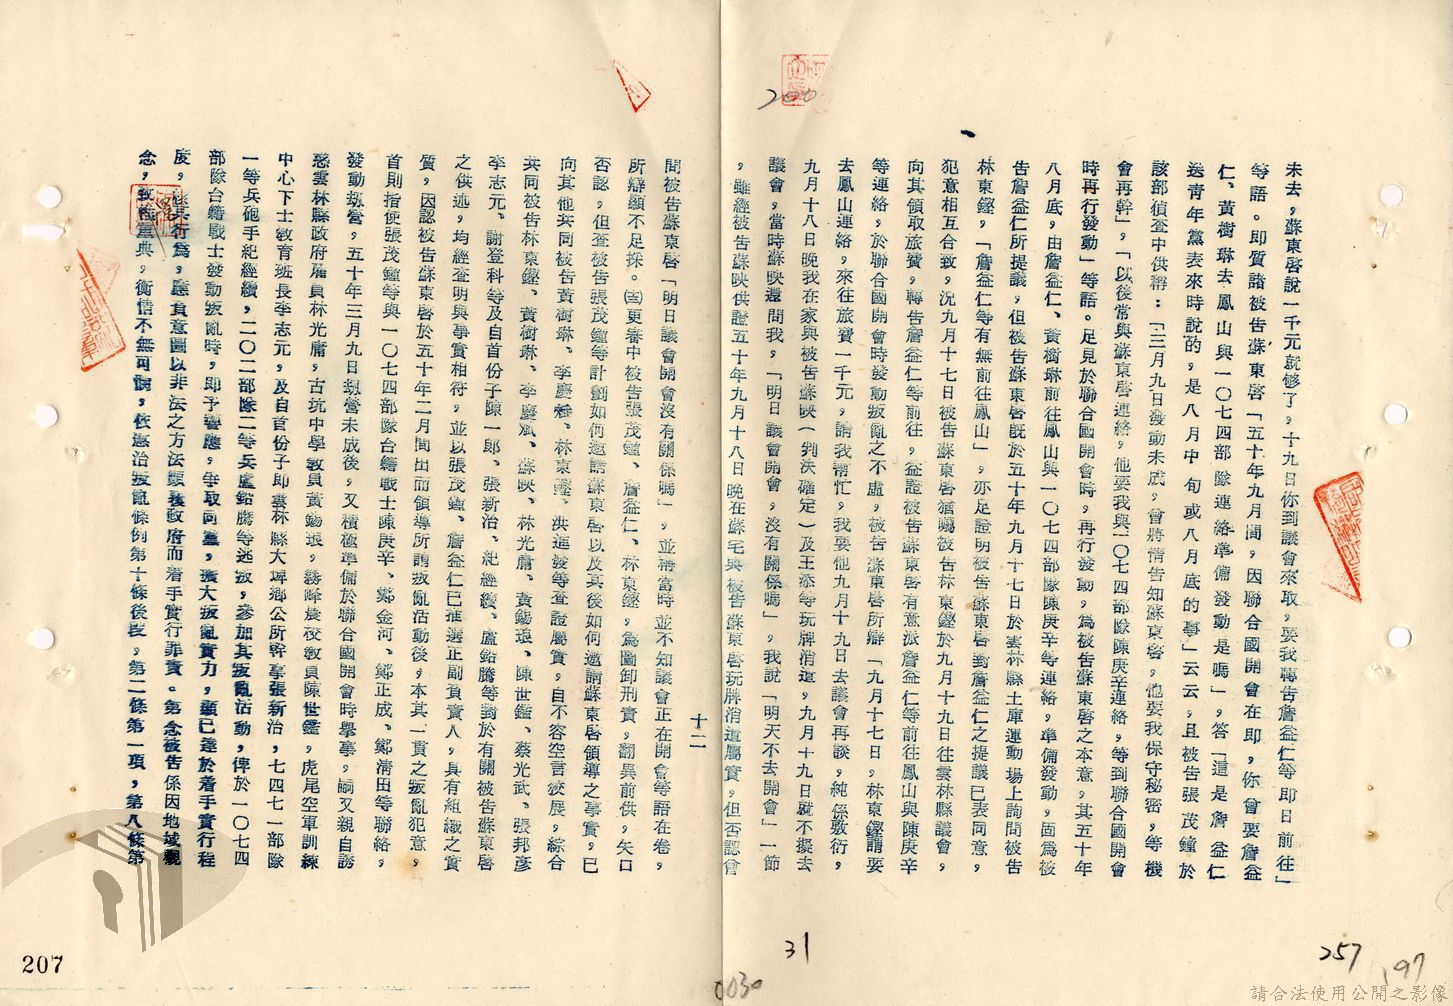 未去，蘇東啓說一千元就够了，十九日你到議會來取，要我轉告詹益仁等即日前往」
等語。即質諸被告蘇東啓「五十年九月間，因聯合國開會在即，你曾要詹益
仁、黃樹琳去鳳山與一〇七四部隊連絡準備發動是嗎」，答「這是詹益仁
送青年黨表來時說的，是八月中旬或八月底的事」云云，且被告張茂鐘於
該部偵查中供稱：「三月九日發動未成，曾將情告知蘇東啓，他要我保守秘密，等機
會再幹」，「以後常與蘇東啓連絡，他要我與一〇七四部隊陳庚辛連絡，等到聯合國開會
時再行發動」等語。足見於聯合國開會時，再行發動，爲被告蘇東啓之本意，其五十年
八月底，由詹益仁、黃樹琳前往鳳山與一〇七四部隊陳庚辛等連絡，準備發動，固爲被
告詹益仁所提議，但被告蘇東啓既於五十年九月十七日於雲林縣土庫運動場上詢問被告
林東鏗，「詹益仁等有無前往鳳山」，亦足證明被告蘇東啓對詹益仁之提議已表同意，
犯意相互合致，況九月十七日被告蘇東啓猶囑被告林東鏗於九月十九日往雲林縣議會，
向其領取旅費，轉告詹益仁等前往，益證被告蘇東啓有意派詹益仁等前往鳳山與陳庚辛
等連絡，於聯合國開會時發動叛亂之不虛，被告蘇東啓所辯「九月十七日，林東鏗謂要
去鳳山連絡，來往旅費一千元，請我幫忙，我要他九月十九日去議會再談，純係敷衍，
九月十八日晚我在家與被告蘇映（判決確定）及王添等玩牌消遣，九月十九日就不擬去
議會，當時蘇映還問我，「明日議會開會，沒有關係嗎」，我說「明天不去開會」一節
，雖經被告蘇映供證五十年九月十八日晚在蘇宅與被告蘇東啓玩牌消遣屬實，但否認曾
十二
間被告蘇東啓「明日議會開會沒有關係嗎」，並稱當時並不知議會正在開會等語在卷，
所辯顯不足採。㈤更審中被告張茂鐘、詹益仁、林東鏗，爲圖卸刑責，翻異前供，矢口
否認，但查被告張茂鐘等計劃如何邀請蘇東啓以及其後如何邀請蘇東啓領導之事實，已
向其他共同被告黃樹琳、李慶斌、林東鏗、洪進發等查證屬實，自不容空言狡展，綜合
共同被告林東鏗、黃樹琳、李慶斌、蘇映、林光庸、黃錫琅、陳世鑑、蔡光武、張邦彥
李志元、謝登科等及自首份子陳一郎、張新治、紀經續、盧鉛騰等對於有關被告蘇東啓
之供述，均經查明與事實相符，並以張茂鐘、詹益仁已推選正副負責人，具有組織之實
質，因認被告蘇東啓於五十年二月間出而領導所謂叛亂活動後，本其一貫之叛亂犯意，
首則指使張茂鐘等與一〇七四部隊台籍戰士陳庚辛、鄭金河、鄭正成、鄭清田等聯絡，
發動劫營，五十年三月九日刼營未成後，又積極準備於聯合國開會時舉事，嗣又親自誘
惑雲林縣政府雇員林光庸，古坑中學教員黃錫琅，霧峰農校教員陳世鑑，虎尾空軍訓練
中心下士教育班長李志元，及自首份子即雲林縣大埤鄉公所幹事張新治，七四七一部隊
一等兵砲手紀經續，二〇二二部隊二等兵盧鉛騰等逃叛，參加其叛亂活動，俾於一〇七四
部隊台籍戰士發動叛亂時，即予響應，爭取同黨，擴大叛亂實力，顯已達於着手實行程
度，核其行爲，應負意圖以非法之方法顛覆政府而着手實行罪責。第念被告係因地域觀
念，致罹重典，衡情不無可憫，依懲治叛亂條例第十條後段，第二條第一項，第八條第
200
31
030
257
197
207
請合法使用公開之影像